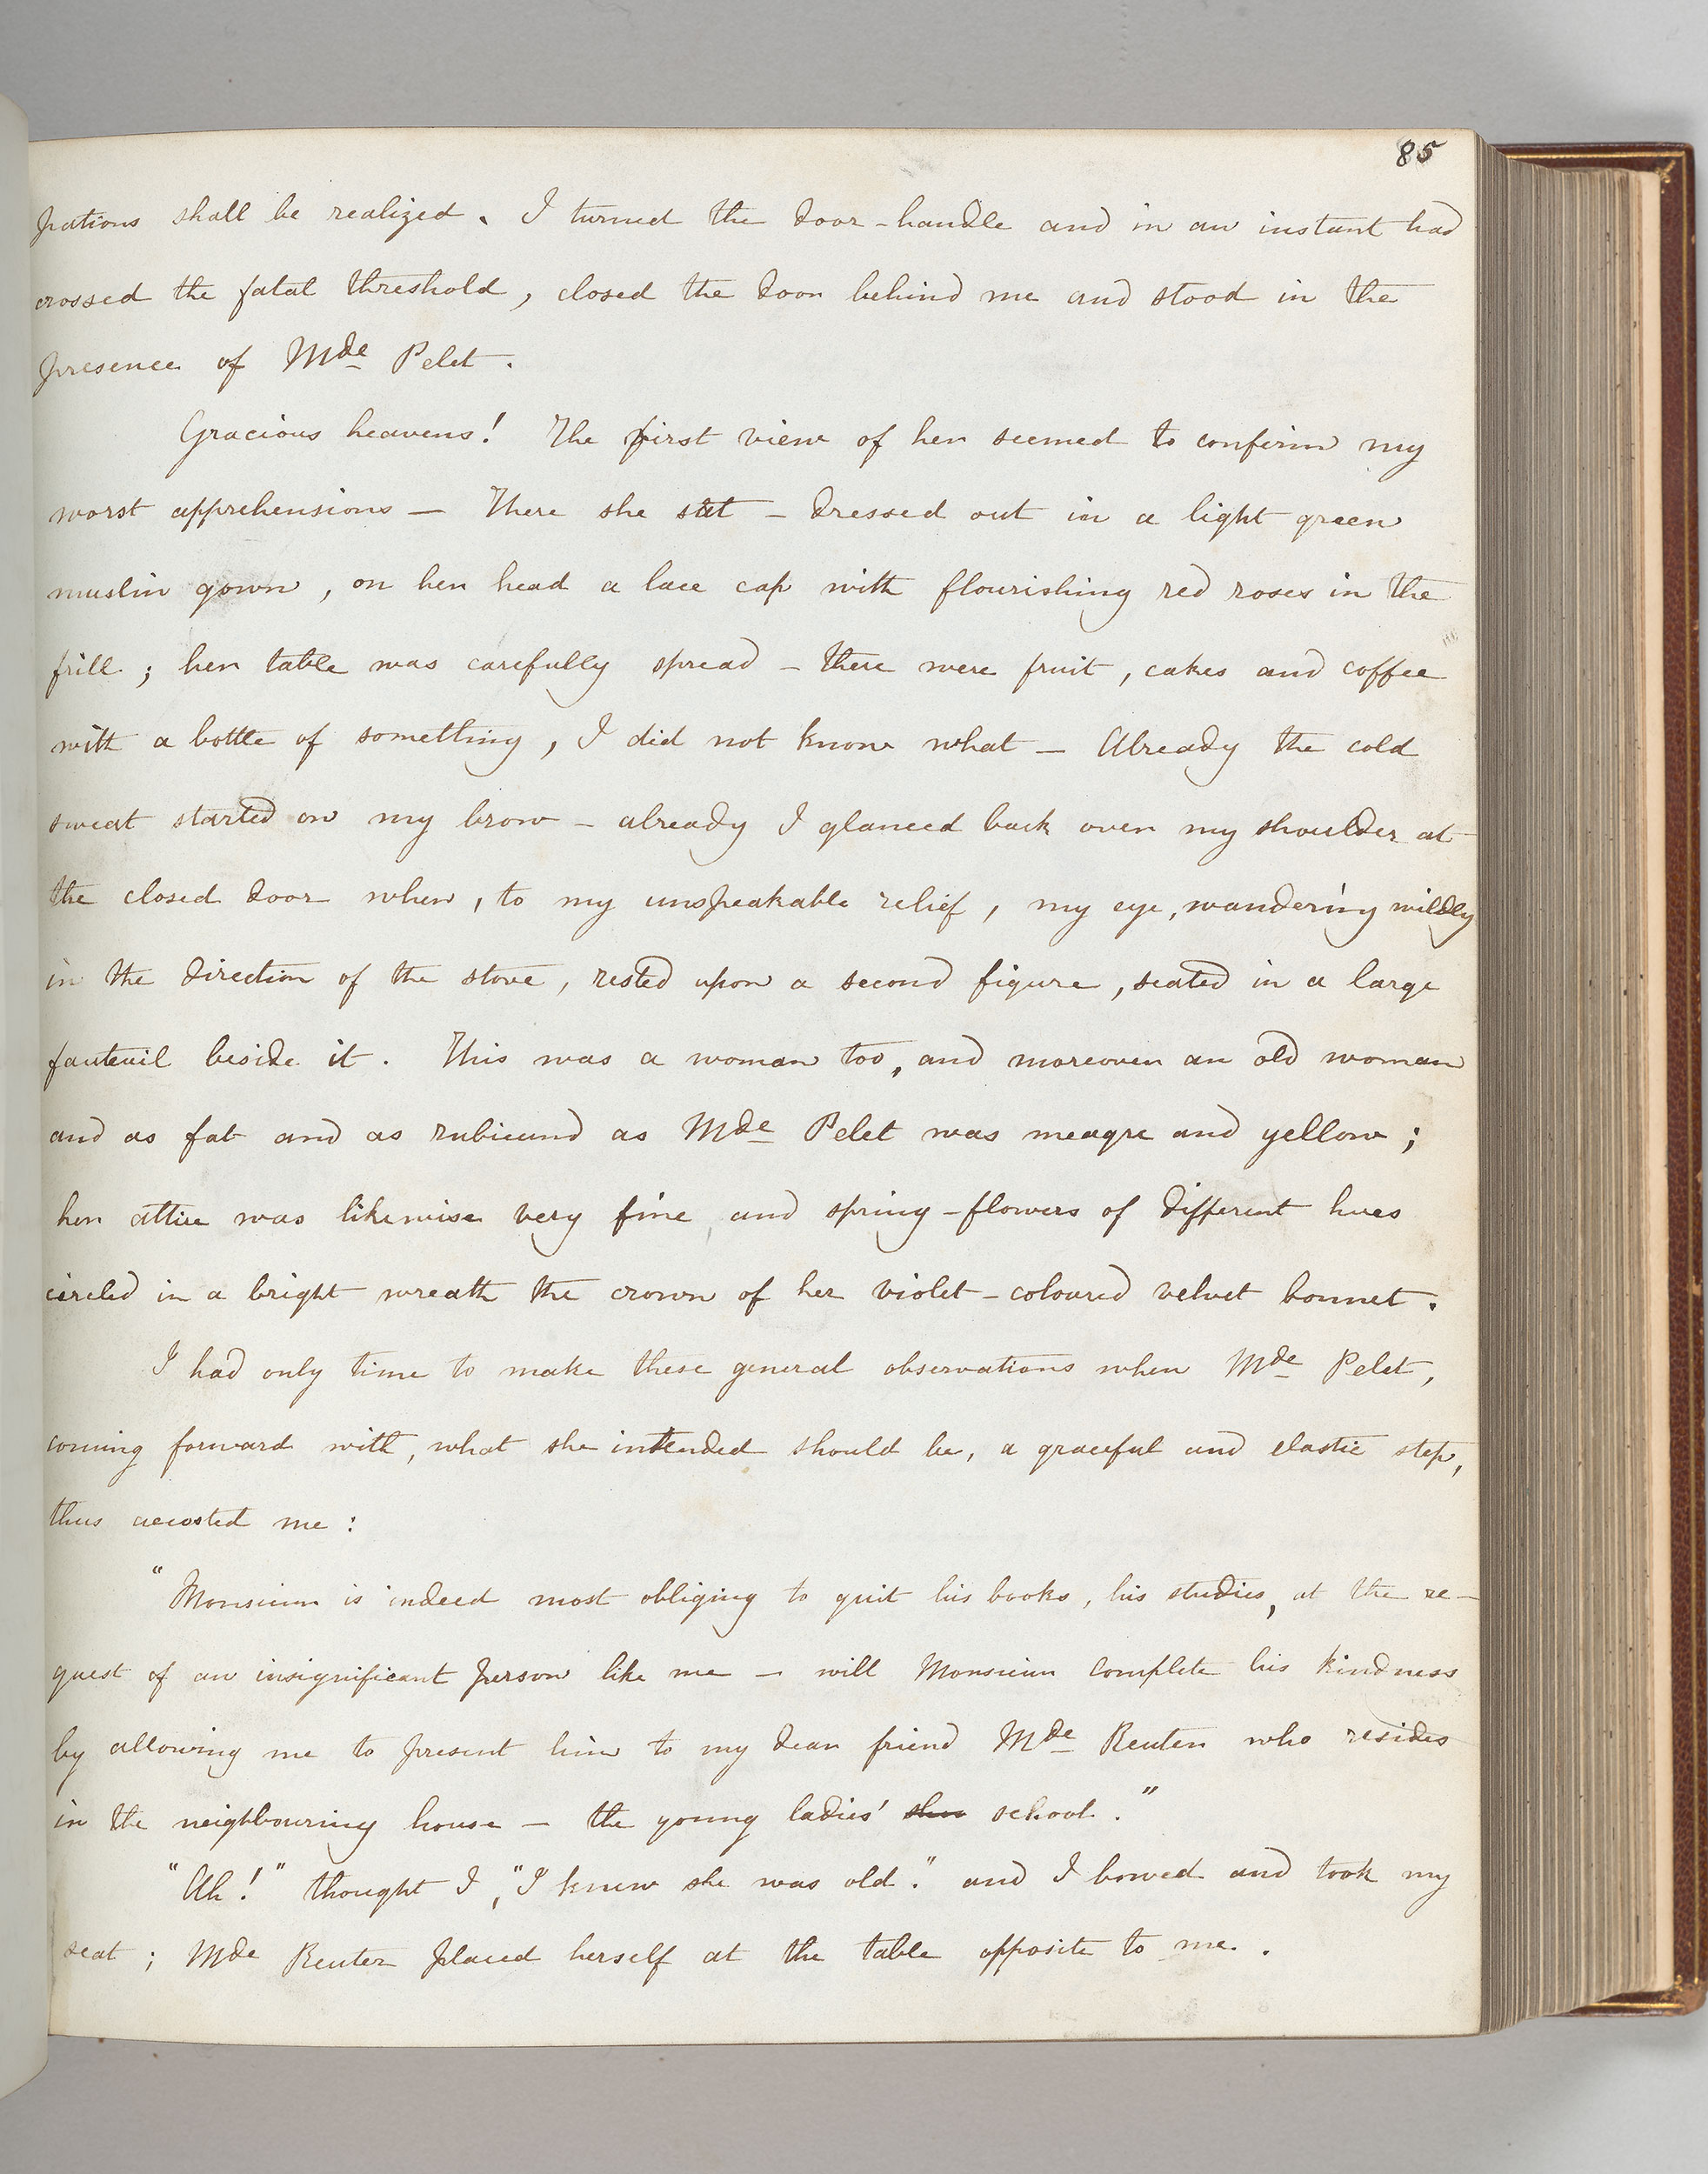 85
pations shall be realized. I turned the door-handle and in an instant had
crossed the fatal threshold, closed the door behind me and stood in the
presence of Mde Pelet.
Gracious heavens! The first view of her seemed to confirm my
worst apprehensions — There she sat — dressed out in a light green
muslin gown, on her head a lace cap with flourishing red roses in the
frill; her table was carefully spread — there were fruit, cakes and coffee
with a bottle of something, I did not know what — Already the cold
sweat started on my brow — already I glanced back over my shoulder at
the closed door when, to my unspeakable relief, my eye, wandering wildly
in the direction of the stove, rested upon a second figure, seated in a large
fauteuil beside it. This was a woman too, and moreover an old woman
and as fat and as rubicund as Mde Pelet was meagre and yellow;
her attire was likewise very fine and spring-flowers of different hues
circled in a bright wreath the crown of her violet-coloured velvet bonnet.
I had only time to make these general observations when Mde Pelet,
coming forward with, what she intended should be, a graceful and elastic step,
thus accosted me:
"Monsieur is indeed most obliging to quit his books, his studies, at the re-
quest of an insignificant person like me — will Monsieur complete his kindness
by allowing me to present him to my dear friend Mde Reuter who resides
in the neighbouring house — the young ladies' school."
"Ah!" thought I, "I knew she was old." and I bowed and took my
seat; Mde Reuter placed herself at the table opposite to me.